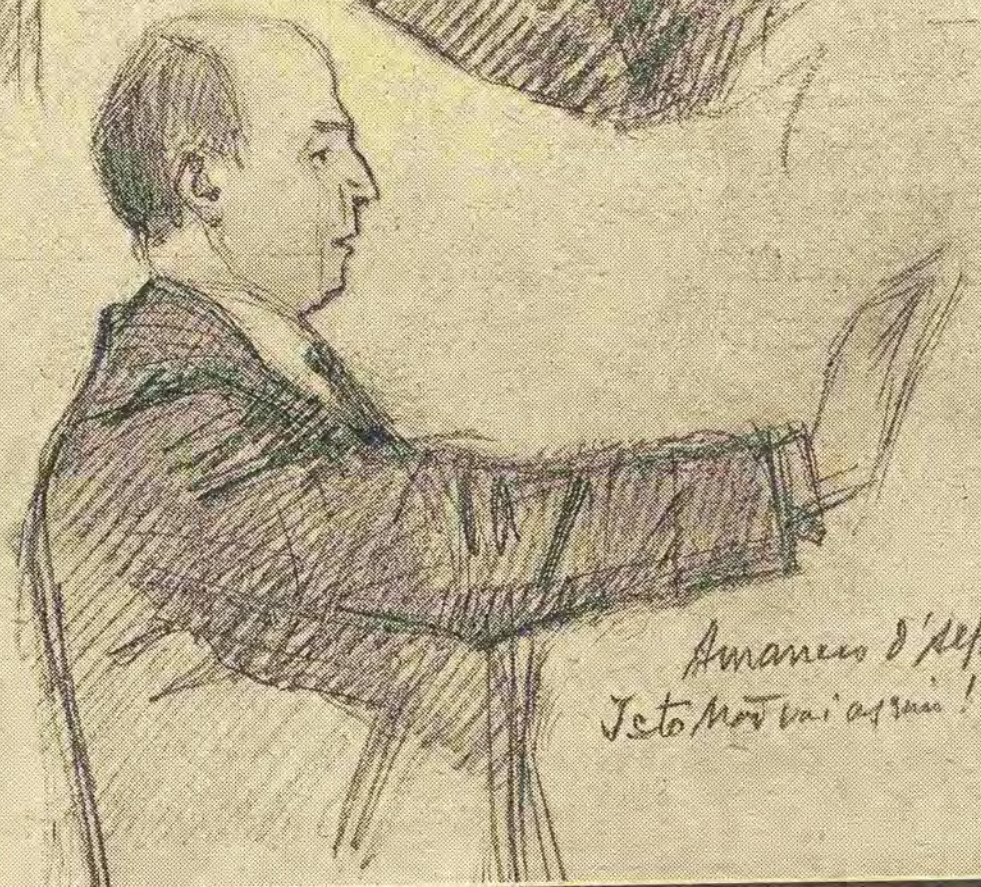 Amancio d'Alp
Isto não vai assim!